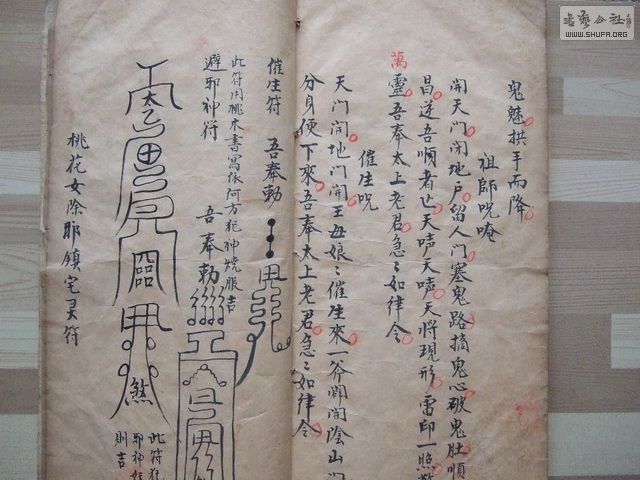 鬼魅拱手而降
祖師咒唵
開天門開地戶留人門塞鬼路摘鬼心破鬼肚順
昌逆吾順者亡天嘵天嘵天將現形雷印一照
萬
靈吾奉太上老君急〻如律令
催生咒
天门開地门開王母娘〻催生來一斧闢開陰山门
分身便下來吾奉太上老君急〻如律令
催生符
吾奉勅
此符用桃木書寫依何方犯神燒服吉
避邪神符
吾奉勅
煞
此符
邪神
則吉
桃花女除邪鎮宅灵符
书艺公社
WWW.SHUFA.ORG